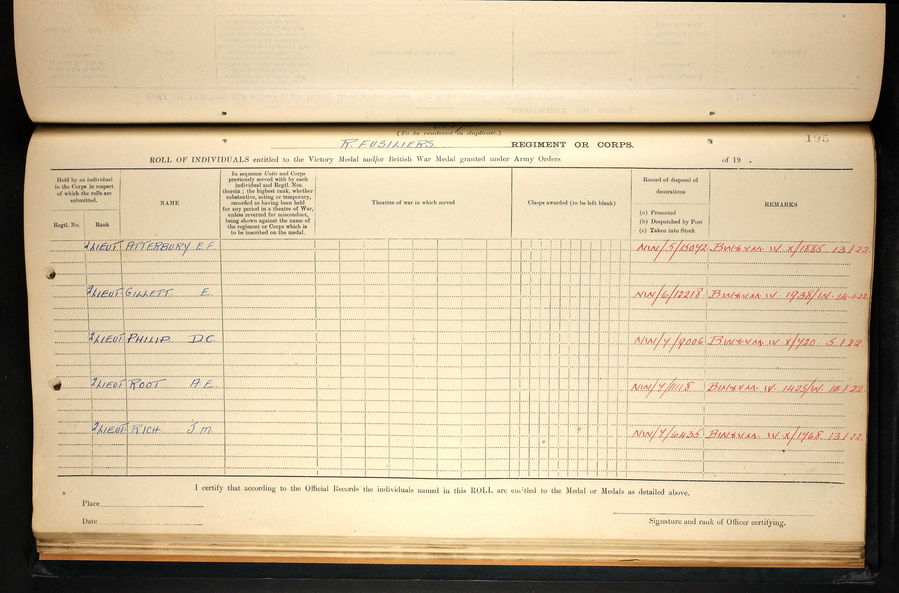 (To be rendered in duplicate.)
R. FUSILIERS. REGIMENT OR CORPS. 195
ROLL OF INDIVIDUALS entitled to the Victory Medal and/or British War Medal granted under Army Orders of 19 .
Held by an individual
in the Corps in respect
of which the rolls are
submitted.
Regtl. No. Rank
NAME
In sequence Units and Corps
previously served with by each
individual and Regtl. Nos.
therein ; the highest rank, whether
substantive, acting or temporary,
recorded as having been held
for any period in a theatre of War,
unless reverted for misconduct,
being shown against the name of
the regiment or Corps which is
to be inscribed on the medal.
Theatres of war in which served
Clasps awarded (to be left blank)
Record of disposal of
decorations
(a) Presented
(b) Despatched by Post
(c) Taken into Stock
REMARKS
2/LIEUT. ATTERBURY E.F. NW/5/15042 BW&VM. IV X/1885 13.1.22
2/LIEUT. GILLETT E. NW/6/12218 BW&VM. IV 1938/IN 14.1.22
2/LIEUT PHILIP D.C. NW/7/9006 BW&VM. IV X/720 5.1.22
2/LIEUT. ROOT A.E. NW/7/11118 BW&VM. IV 1425/IN 10.1.22
2/LIEUT. RICH J.M. NW/7/6435 BW&VM. IV X/1765 13.1.22
I certify that according to the Official Records the individuals named in this ROLL are entitled to the Medal or Medals as detailed above.
Place
Date
Signature and rank of Officer certifying.